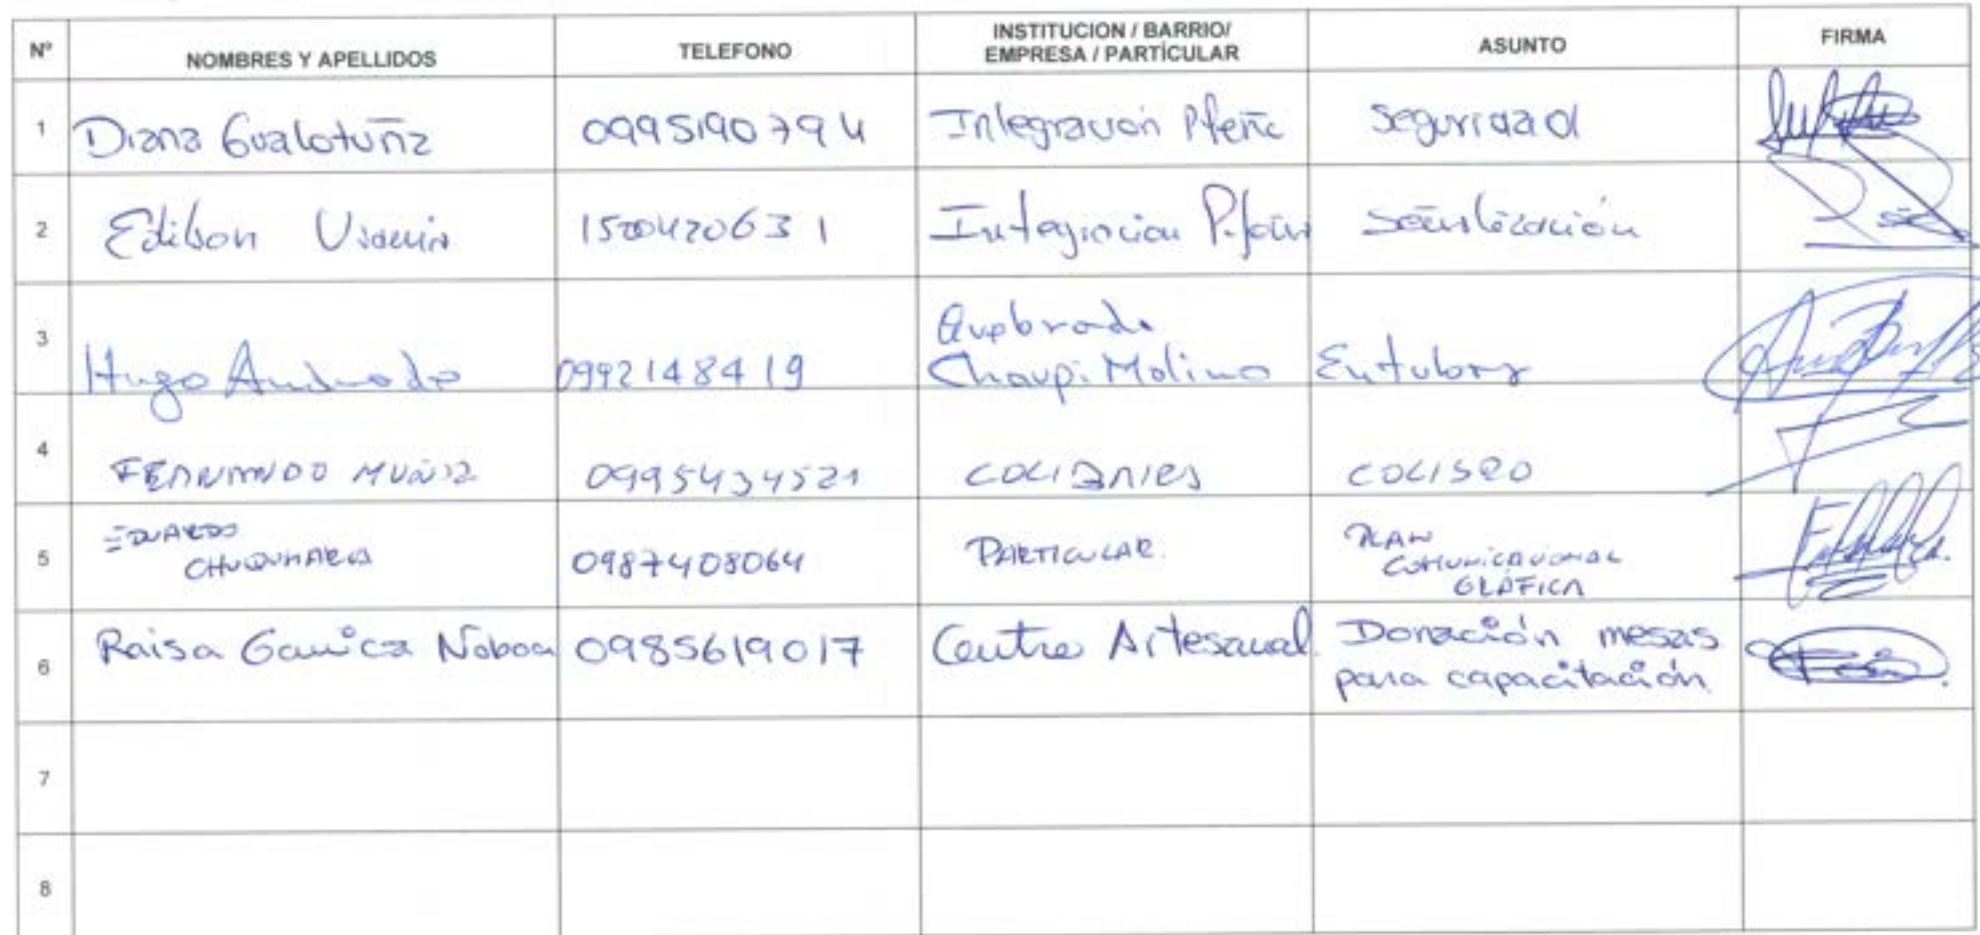 Nº NOMBRES Y APELLIDOS TELEFONO INSTITUCION / BARRIO/ EMPRESA / PARTÍCULAR ASUNTO FIRMA
1 Diana Gualotuña 0995190794 Integración Pifeña Seguridad
2 Edison 1500420631 Integración Señalización
3 Hugo Andrade 0992148419 Quebrada
Chaupi Molino Entubar
4 FERNANDO MUÑIZ 0995434521 COLISEO
5 EDUARDO
0987408064 PARTICULAR. PLAN
COMUNICACIONAL
GRÁFICA
6 Raisa Garnica Noboa 0985619017 Centro Artesanal. Donación mesas
para capacitación.
7
8